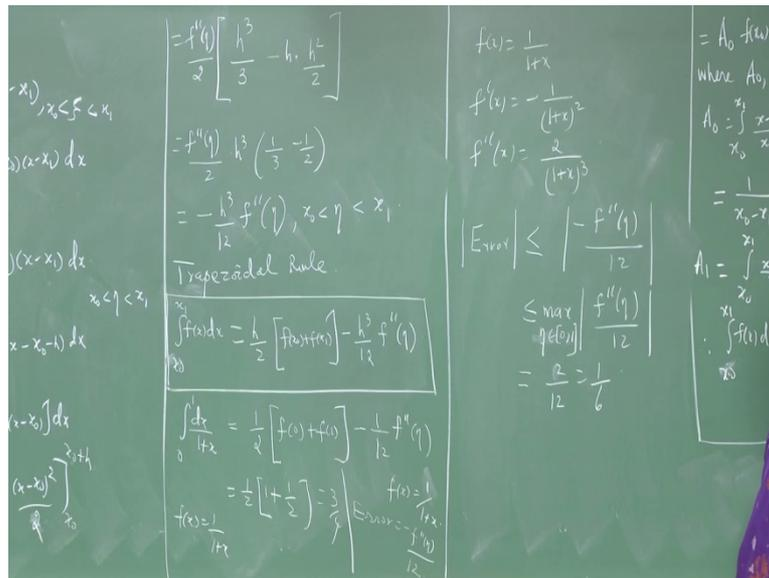 -x₁), x₀<ξ<x₁
)(x-x₁) dx
)(x-x₁) dx
x₀<η<x₁
x-x₀-h) dx
(x-x₀)] dx
(x-x₀)²/2 ]ₓ₀^(x₀+h)
= f''(η)/2 [h³/3 - h·h²/2]
= f''(η)/2 h³ (1/3 - 1/2)
= -h³/12 f''(η), x₀<η<x₁.
Trapezoidal Rule.
∫ₓ₀^x₁ f(x)dx = h/2 [f(x₀)+f(x₁)] - h³/12 f''(η)
∫₀¹ dx/(1+x) = 1/2 [f(0)+f(1)] - 1/12 f''(η)
= 1/2 [1+1/2] = 3/4
f(x)=1/(1+x)
f(x)=1/(1+x).
Error = -f''(η)/12
f(x)=1/(1+x)
f'(x)=-1/(1+x)²
f''(x)=2/(1+x)³
|Error| ≤ |-f''(η)/12|
≤ max η∈[0,1] |f''(η)/12|
= 2/12 = 1/6.
= A₀ f(x₀)
where A₀,
A₀ = ∫ₓ₀^x₁ x-
= 1/(x₀-x
A₁ = ∫ₓ₀^x₁ x
∴ ∫ₓ₀^x₁ f(x)d